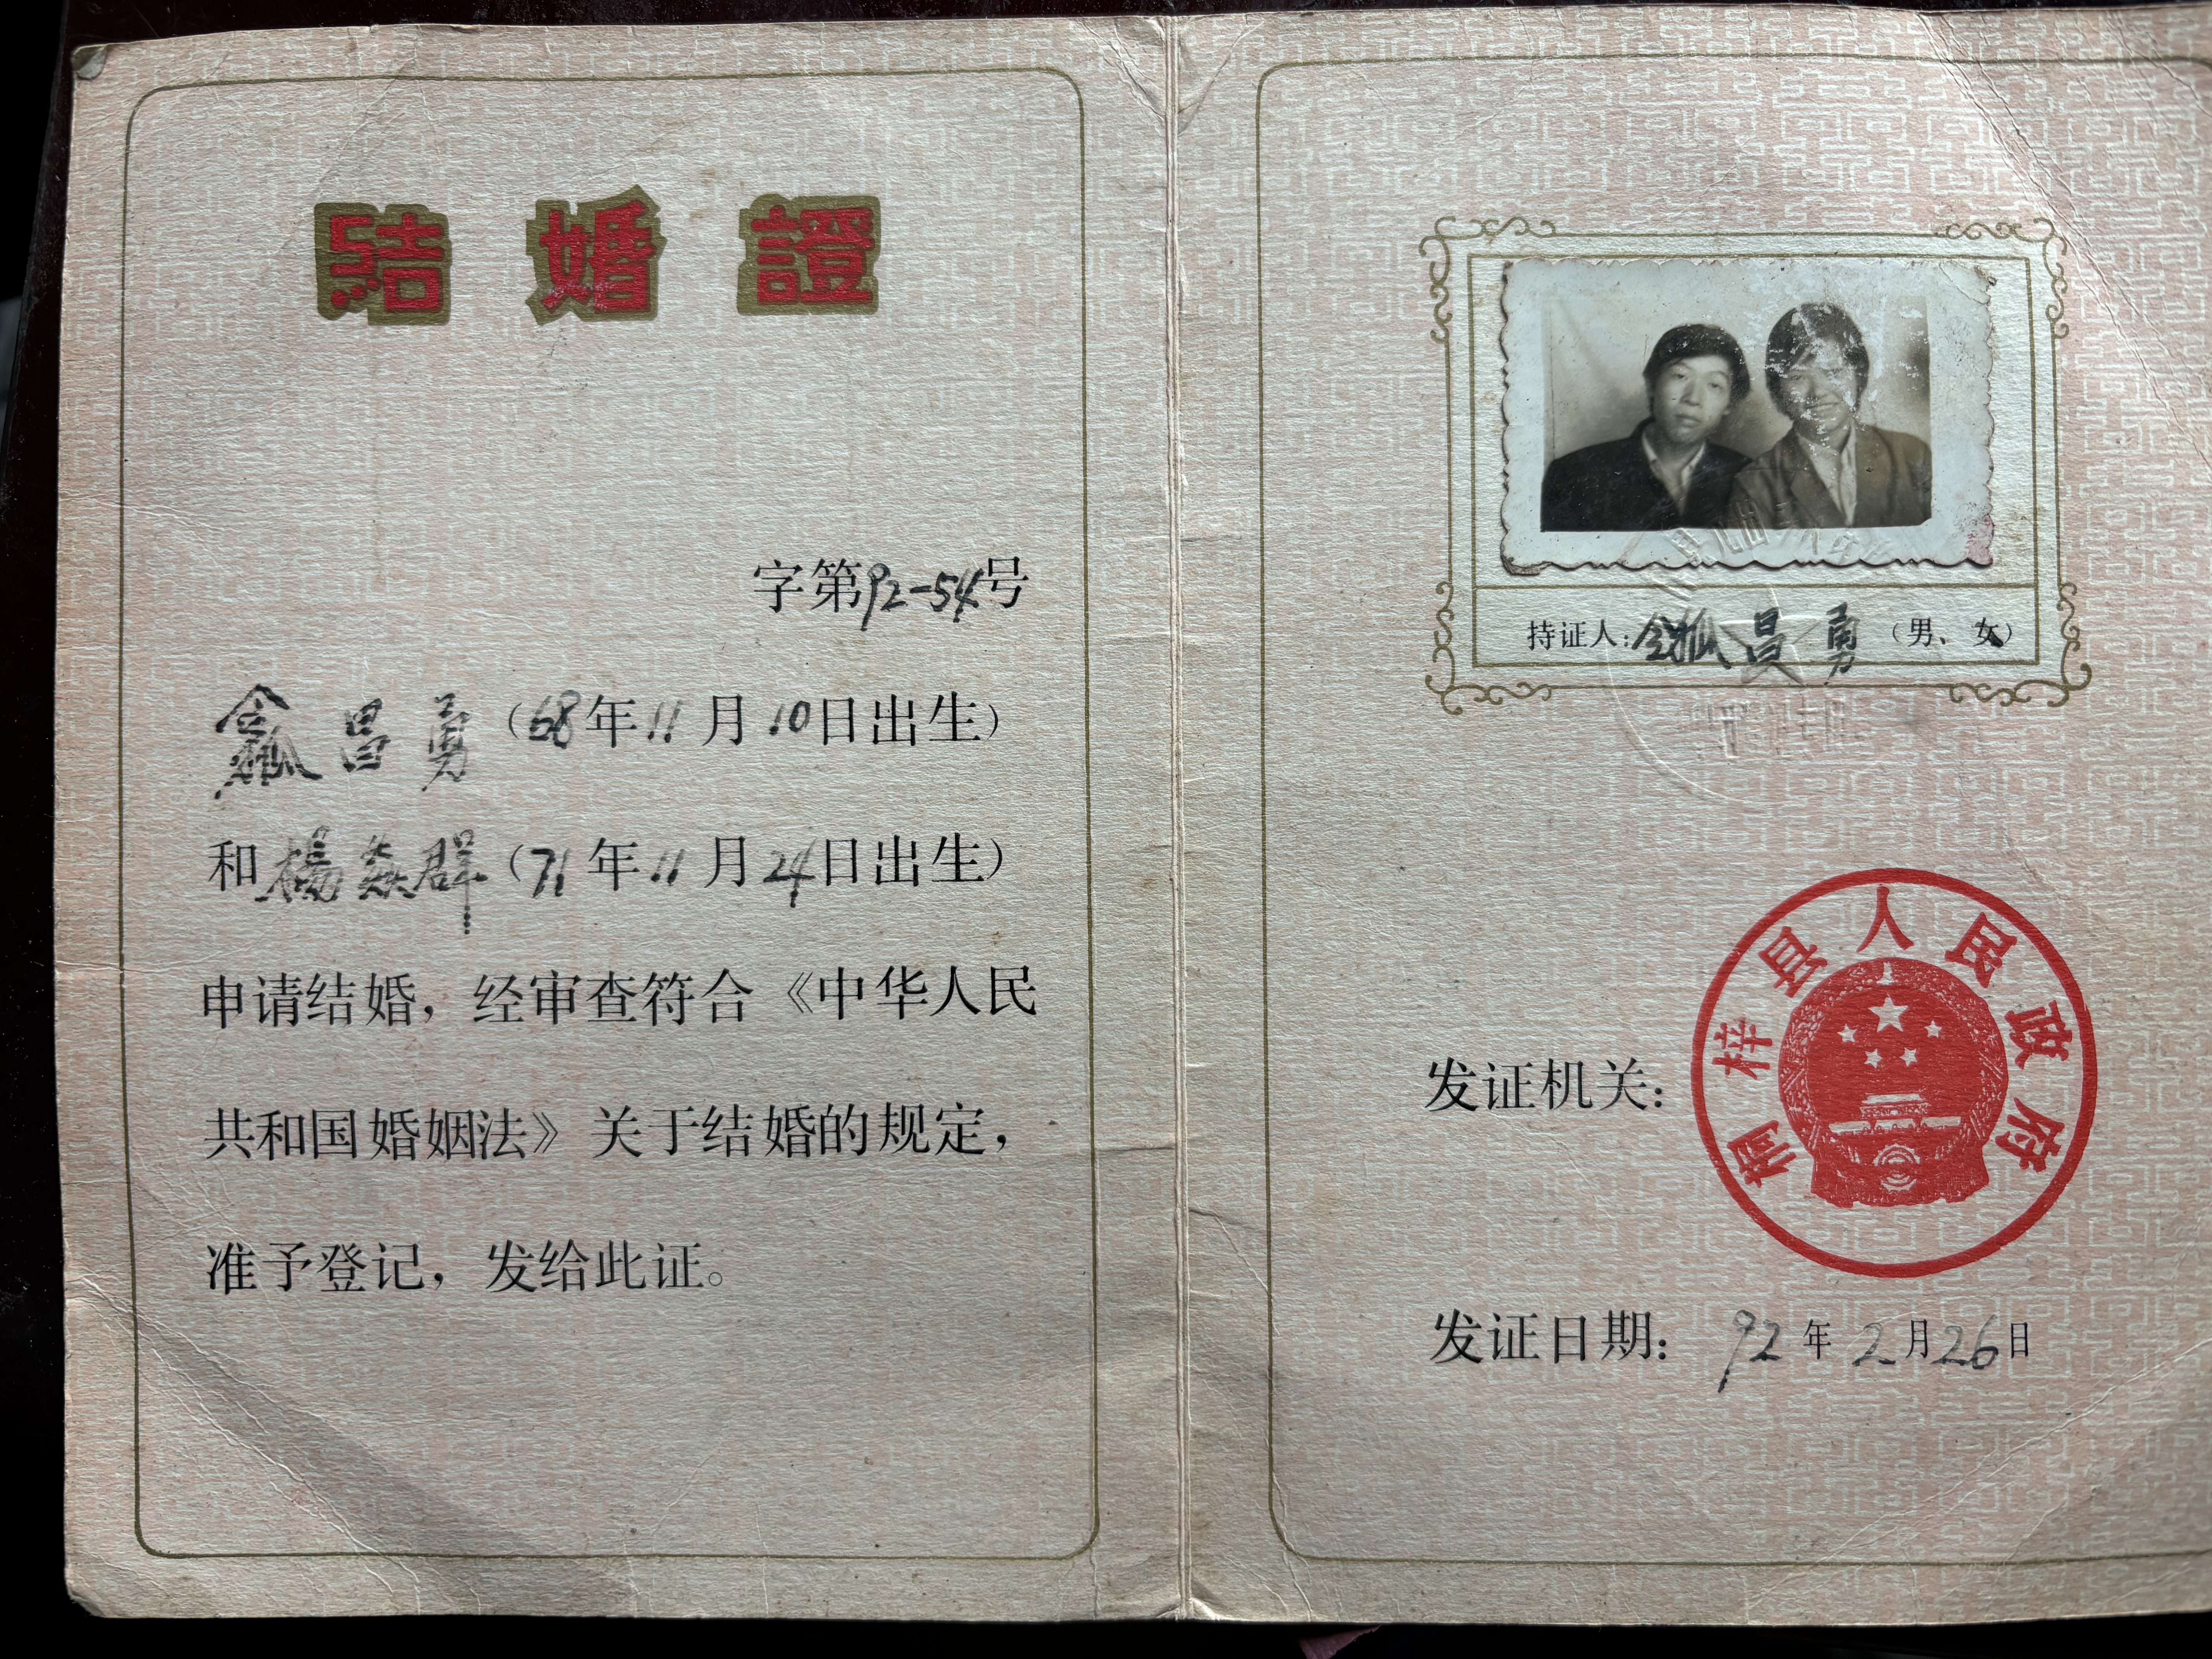 結婚證
字第92-54号
令狐昌勇（68年11月10日出生）
和楊 群（71年11月24日出生）
申请结婚，经审查符合《中华人民
共和国婚姻法》关于结婚的规定，
准予登记，发给此证。
持证人：令狐昌勇（男、女）
发证机关：
桐梓县人民政府
发证日期：92年2月26日